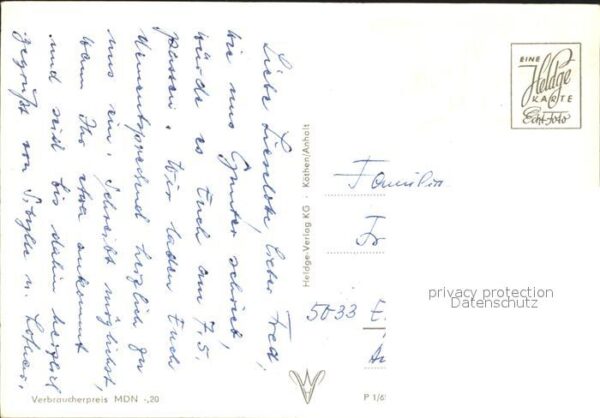 Liebe Liselotte, lieber Fred,
wie uns Günter schrieb,
würde es Euch am 7.5.
passen. Wir laden Euch
dementsprechend herzlich zu
uns ein. Schreibt möglichst,
wann Ihr etwa ankommt
und seid bis dahin herzlich
gegrüßt von Sibylle u. Lothar.
EINE
Heldge
KARTE
Echt Foto
Heldge-Verlag KG · Köthen/Anholt
Familie
Fr
5033 E
privacy protection
Datenschutz
Verbraucherpreis MDN -,20
P 1/6